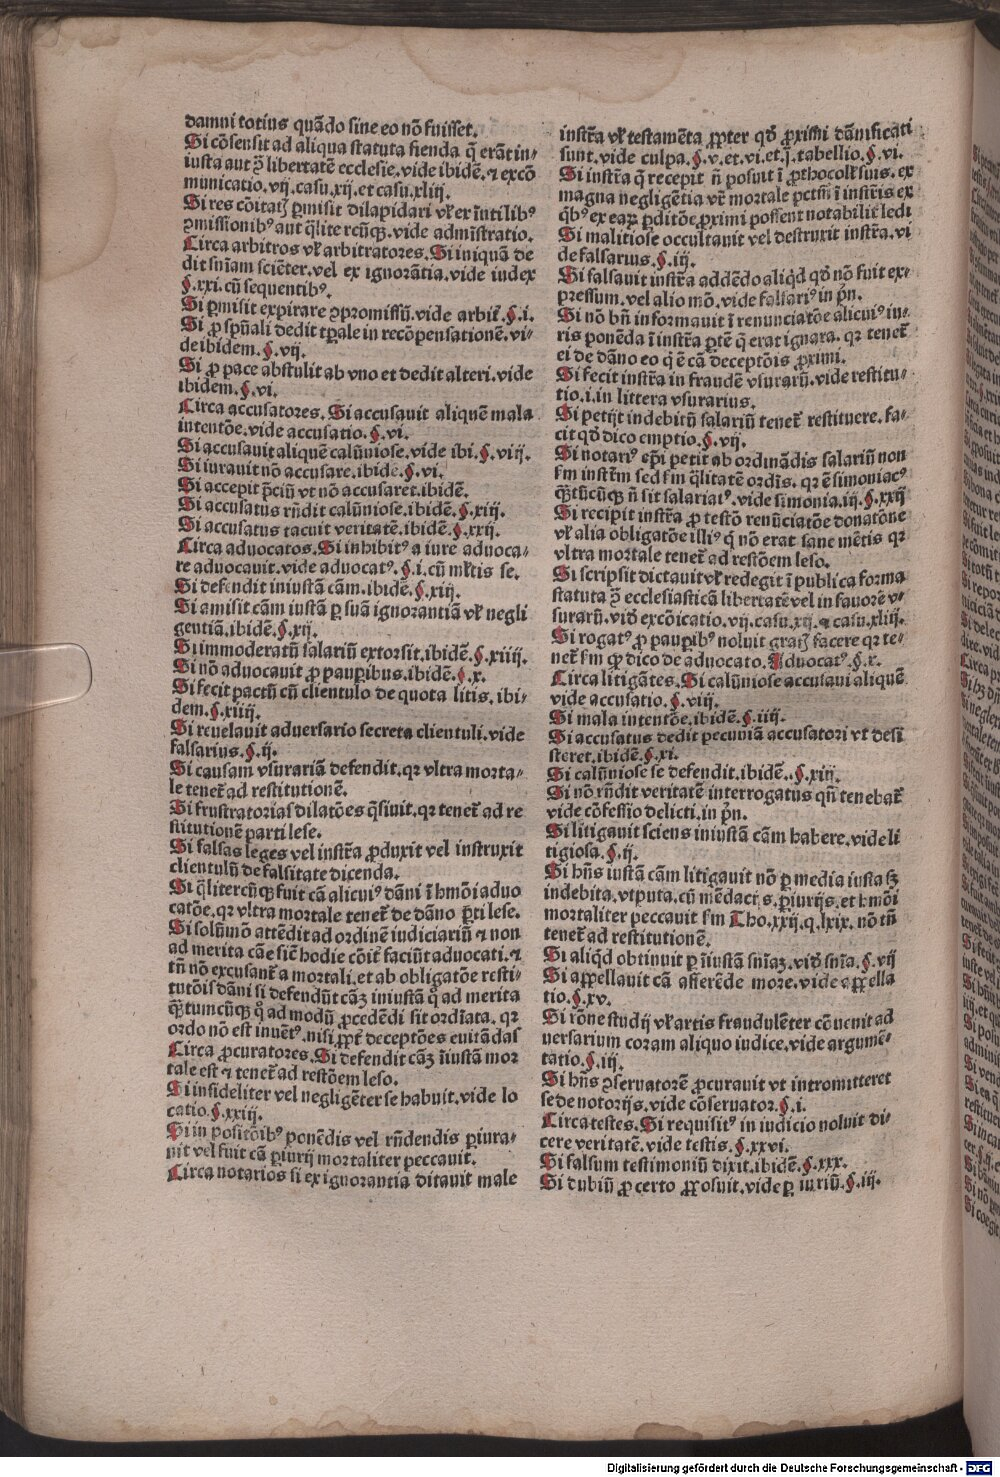 damni totius quãdo sine eo nõ fuisset.
Si cõsensit ad aliqua statuta fienda q̃ erãt in-
iusta aut ꝯ̃ libertatẽ ecclesie. vide ibidẽ. ⁊ excõ
municatio. vij. casu. xij. et casu. xliij.
Si res cõitatꝭ ꝑmisit dilapidari vł ex ĩutilibꝰ
ꝓmissionibꝰ aut q̃lite rcũqꝫ. vide admĩstratio.
Circa arbitros vł arbitratores. Si iniquã de
dit sniam sciẽter. vel ex ignorãtia. vide iudex
§. xxi. cũ sequentibꝰ.
Si ꝑmisit expirare ꝯpromissũ. vide arbit̃. §. i.
Si ꝓ spũali dedit tꝑale in recõpensationẽ. vi-
de ibidem. §. vij.
Si ꝓ pace abstulit ab vno et dedit alteri. vide
ibidem. §. vi.
Circa accusatores. Si accusauit aliquẽ mala
intentõe. vide accusatio. §. vi.
Si accusauit aliquẽ calũniose. vide ibi. §. viij.
Si iurauit nõ accusare. ibidẽ. §. vi.
Si accepit p̃ciũ vt nõ accusaret. ibidẽ.
Si accusatus rñdit calũniose. ibidẽ. §. xiij.
Si accusatus tacuit veritatẽ. ibidẽ. §. xxij.
Circa aduocatos. Si inhibitꝰ a iure aduoca-
re aduocauit. vide aduocatꝰ. §. i. cũ mł̃tis se.
Si defendit iniustã cãm. ibidẽ. §. xij.
Si amisit cãm iustã ꝑ suã ignorantiã vł negli
gentiã. ibidẽ. §. xij.
Si immoderatũ salariũ extorsit. ibidẽ. §. xiiij.
Si nõ aduocauit ꝓ pauꝑibus. ibidẽ. §. x.
Si fecit pactũ cũ clientulo de quota litis. ibi-
dem. §. xiiij.
Si reuelauit aduersario secreta clientuli. vide
falsarius. §. ij.
Si causam vsurariã defendit. qꝛ vltra morta-
le tenet̃ ad restitutionẽ.
Si frustratorias dilatões q̃siuit. qꝛ tenet̃ ad re
stitutionẽ parti lese.
Si falsas leges vel instr̃a ꝓduxit vel instruxit
clientulũ de falsitate dicenda.
Si q̃litercũqꝫ fuit cã alicuiꝰ dãni ĩ hmõi aduo
catõe. qꝛ vltra mortale tenet̃ de dãno ꝑti lese.
Si solũmõ attẽdit ad ordinẽ iudiciariũ ⁊ non
ad merita cãe sicẽ hodie cõit̃ faciũt aduocati. ⁊
tñ nõ excusant̃ a mortali. et ab obligatõe resti-
tutõis dãni si defendũt cãꝫ iniustã qͦ ad merita
qꝫ̃tumcũqꝫ qͦ ad modũ ꝓcedẽdi sit ordĩata. qꝛ
ordo nõ est inuẽtꝰ. nisi ꝓpt̃ deceptões euitãdas
Circa ꝓcuratores. Si defendit cãꝫ ĩiustã mor
tale est ⁊ tenet̃ ad restõem leso.
Si infideliter vel negligẽter se habuit. vide lo
catio. §. xxiij.
Si in positõibꝰ ponẽdis vel rñdendis ꝑiura-
uit vel fuit cã ꝑiurij mortaliter peccauit.
Circa notarios si ex ignorantia ditauit male
instr̃a vł testamẽta ꝓpter qð ꝓximi dãnificati
sunt. vide culpa. §. v. et. vi. et. j. tabellio. §. vi.
Si instr̃a q̃ recepit ñ posuit ĩ ꝓthocoll̃ suis. ex
magna negligẽtia vtr̃ mortale pctm̃ ĩ instr̃is ex
q̃bꝰ ex eaꝝ ꝑditõe ꝓximi possent notabilit̃ ledi
Si malitiose occultauit vel destruxit instr̃a. vi
de falsarius. §. iij.
Si falsauit instr̃a addẽdo aliq̃d qð nõ fuit ex-
pressum. vel alio mõ. vide falsariꝰ in p̃n.
Si nõ bñ informauit ĩ renunciatõe alicuiꝰ iu-
ris ponẽda ĩ instr̃a ꝑtẽ q̃ erat ignara. qꝛ tenet̃
ei de dãno eo q̃ ẽ cã deceptõis ꝓximi.
Si fecit instr̃a in fraudẽ vsurarũ. vide restitu-
tio. i. in littera vsurarius.
Si petijt indebitũ salariũ tenet̃ restituere. fa-
cit qð dico emptio. §. vij.
Si notariꝰ ep̃i petit ab ordinãdis salariũ non
ẜm instr̃m sed ẜm q̃litatẽ ordĩs. qꝛ ẽ simoniacꝰ
qꝫ̃tũcũqꝫ ñ sit salariatꝰ. vide simonia. iij. §. xxij
Si recipit instr̃a ꝓ testõ renũciatõe donatõne
vł alia obligatõe illiꝰ q̃ nõ erat sane mẽtis qꝛ
vltra mortale tenet̃ ad restõem leso.
Si scripsit dictauit vł redegit ĩ publica forma
statuta ꝯ̃ ecclesiasticã libertatẽ vel in fauorẽ v-
surarũ. vid̃ excõicatio. vij. casu. xij. ⁊ casu. xliij.
Si rogatꝰ ꝓ pauꝑibꝰ noluit gratꝭ facere qꝛ te-
net̃ ẜm ꝙ dico de aduocato. Aduocatꝰ. §. x.
Circa litigãtes. Si calũniose accusaui aliquẽ
vide accusatio. §. viij.
Si mala intentõe. ibidẽ. §. iiij.
Si accusatus dedit pecuniã accusatori vt desi
steret. ibidẽ. §. xi.
Si calũniose se defendit. ibidẽ. §. xiij.
Si nõ rñdit veritatẽ interrogatus qñ tenebat̃
vide cõfessio delicti. in p̃n.
Si litigauit sciens iniustã cãm habere. vide li
tigiosa. §. ij.
Si hñs iustã cãm litigauit nõ ꝑ media iusta sꝫ
indebita. vtputa. cũ mẽdacijs. ꝑiurijs. et hmõi
mortaliter peccauit ẜm Tho. xxij. q. lxix. nõ tñ
tenet̃ ad restitutionẽ.
Si aliq̃d obtinuit ꝑ ĩiustã snĩaꝫ. vid̃ snĩa. §. vij
Si appellauit cã afferẽde more. vide appella
tio. §. xv.
Si rõne studij vł artis fraudulẽter cõuenit ad
uersarium coram aliquo iudice. vide argumẽ-
tatio. §. iij.
Si hñs ꝯseruatorẽ ꝓcurauit vt intromitteret
se de notorijs. vide cõseruator. §. i.
Circa testes. Si requisitꝰ in iudicio noluit di-
cere veritatẽ. vide testis. §. xxvi.
Si falsum testimoniũ dixit. ibidẽ. §. xxx.
Si dubiũ ꝓ certo ꝓposuit. vide ꝑiuriũ. §. iij.
Digitalisierung gefördert durch die Deutsche Forschungsgemeinschaft - DFG